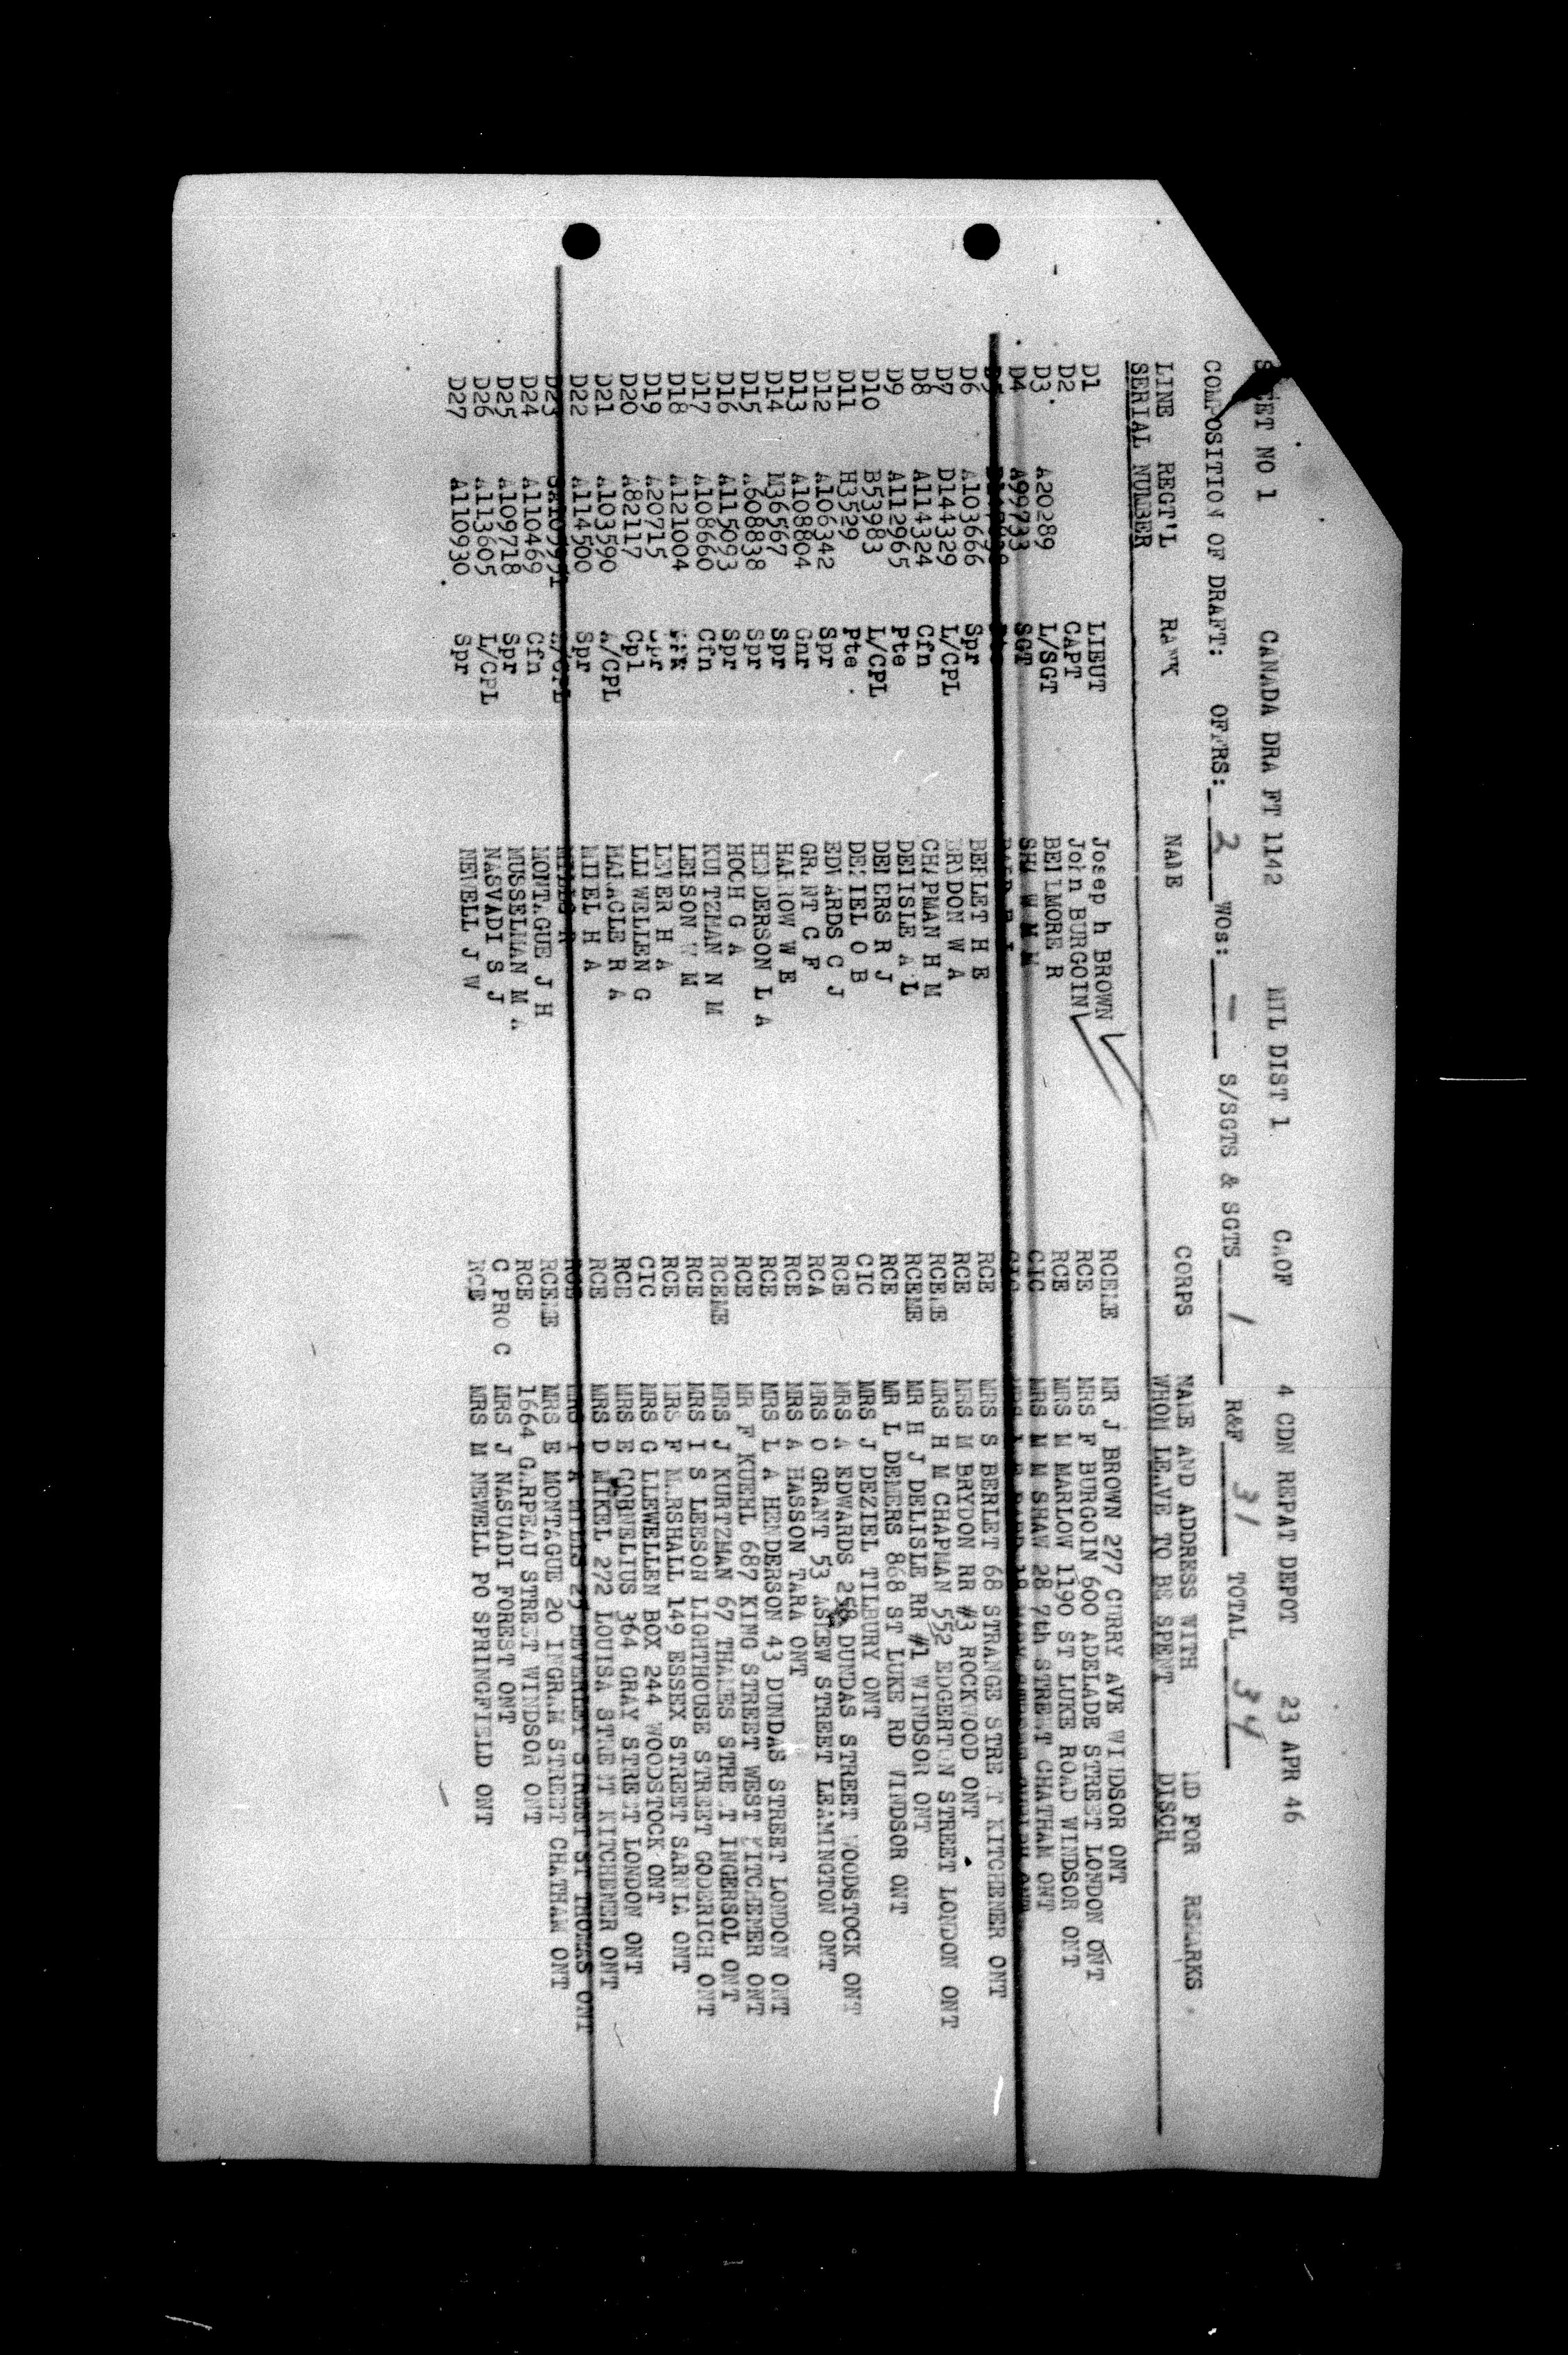 SHEET NO 1 CANADA DRA FT 1142 MIL DIST 1 CAOF 4 CDN REPAT DEPOT 23 APR 46
COMPOSITION OF DRAFT: OFFRS: 2 WOs: - S/SGTS & SGTS 1 R&F 31 TOTAL 34
LINE REGT'L RANK NAME CORPS NAME AND ADDRESS WITH MD FOR REMARKS
SERIAL NUMBER WHOM LEAVE TO BE SPENT DISCH
D1 LIEUT Josep h BROWN RCEME MR J BROWN 277 CURRY AVE WINDSOR ONT
D2 CAPT John BURGOIN RCE MRS F BURGOIN 600 ADELADE STREET LONDON ONT
D3 A20289 L/SGT BELLMORE R RCE MRS M MARLOW 1190 ST LUKE ROAD WINDSOR ONT
D4 A99733 SGT SHAW M M CIC MRS M M SHAW 28 7th STREET CHATHAM ONT
D5 CIC
D6 A103666 Spr BERLET H E RCE MRS S BERLET 68 STRANGE STREET KITCHENER ONT
D7 D144329 L/CPL BRYDON W A RCE MRS M BRYDON RR #3 ROCKWOOD ONT
D8 A114324 Cfn CHAPMAN H M RCEME MRS H M CHAPMAN 552 EDGERTON STREET LONDON ONT
D9 A112965 Pte DELISLE A L RCEME MR H J DELISLE RR #1 WINDSOR ONT
D10 B53983 L/CPL DEMERS R J RCE MR L DEMERS 868 ST LUKE RD WINDSOR ONT
D11 H3529 Pte DEZIEL O B CIC MRS J DEZIEL TILBURY ONT
D12 A106342 Spr EDWARDS C J RCE MRS A EDWARDS 258 DUNDAS STREET WOODSTOCK ONT
D13 A108804 Gnr GRANT C F RCA MRS O GRANT 53 ASKEW STREET LEAMINGTON ONT
D14 M36567 Spr HARROW W E RCE MRS A HASSON TARA ONT
D15 A608838 Spr HENDERSON L A RCE MRS L A HENDERSON 43 DUNDAS STREET LONDON ONT
D16 A115093 Spr HOCH G A RCE MR F KUEHL 687 KING STREET WEST KITCHENER ONT
D17 A108660 Cfn KURTZMAN N M RCEME MRS J KURTZMAN 67 THAMES STREET INGERSOL ONT
D18 A121004 LEESON W M RCE MRS I S LEESON LIGHTHOUSE STREET GODERICH ONT
D19 A20715 Spr LEVER H A RCE MRS F MARSHALL 149 ESSEX STREET SARNIA ONT
D20 A82117 Cpl LLEWELLEN G CIC MRS G LLEWELLEN BOX 244 WOODSTOCK ONT
D21 A103590 A/CPL MALAGLE R A RCE MRS E CORNELIUS 364 GRAY STREET LONDON ONT
D22 A114500 Spr MIKEL H A RCE MRS D MIKEL 272 LOUISA STREET KITCHENER ONT
D23 A/CPL MILLS R RCE MRS I A MILLS 29 BEVERLEY STREET ST THOMAS ONT
D24 A110469 Cfn MONTAGUE J H RCEME MRS E MONTAGUE 20 INGRAM STREET CHATHAM ONT
D25 A109718 Spr MUSSELMAN M A RCE 1664 GARPEAU STREET WINDSOR ONT
D26 A113605 L/CPL NASVADI S J C PRO C MRS J NASUADI FOREST ONT
D27 A110930 Spr NEWELL J W RCE MRS M NEWELL PO SPRINGFIELD ONT